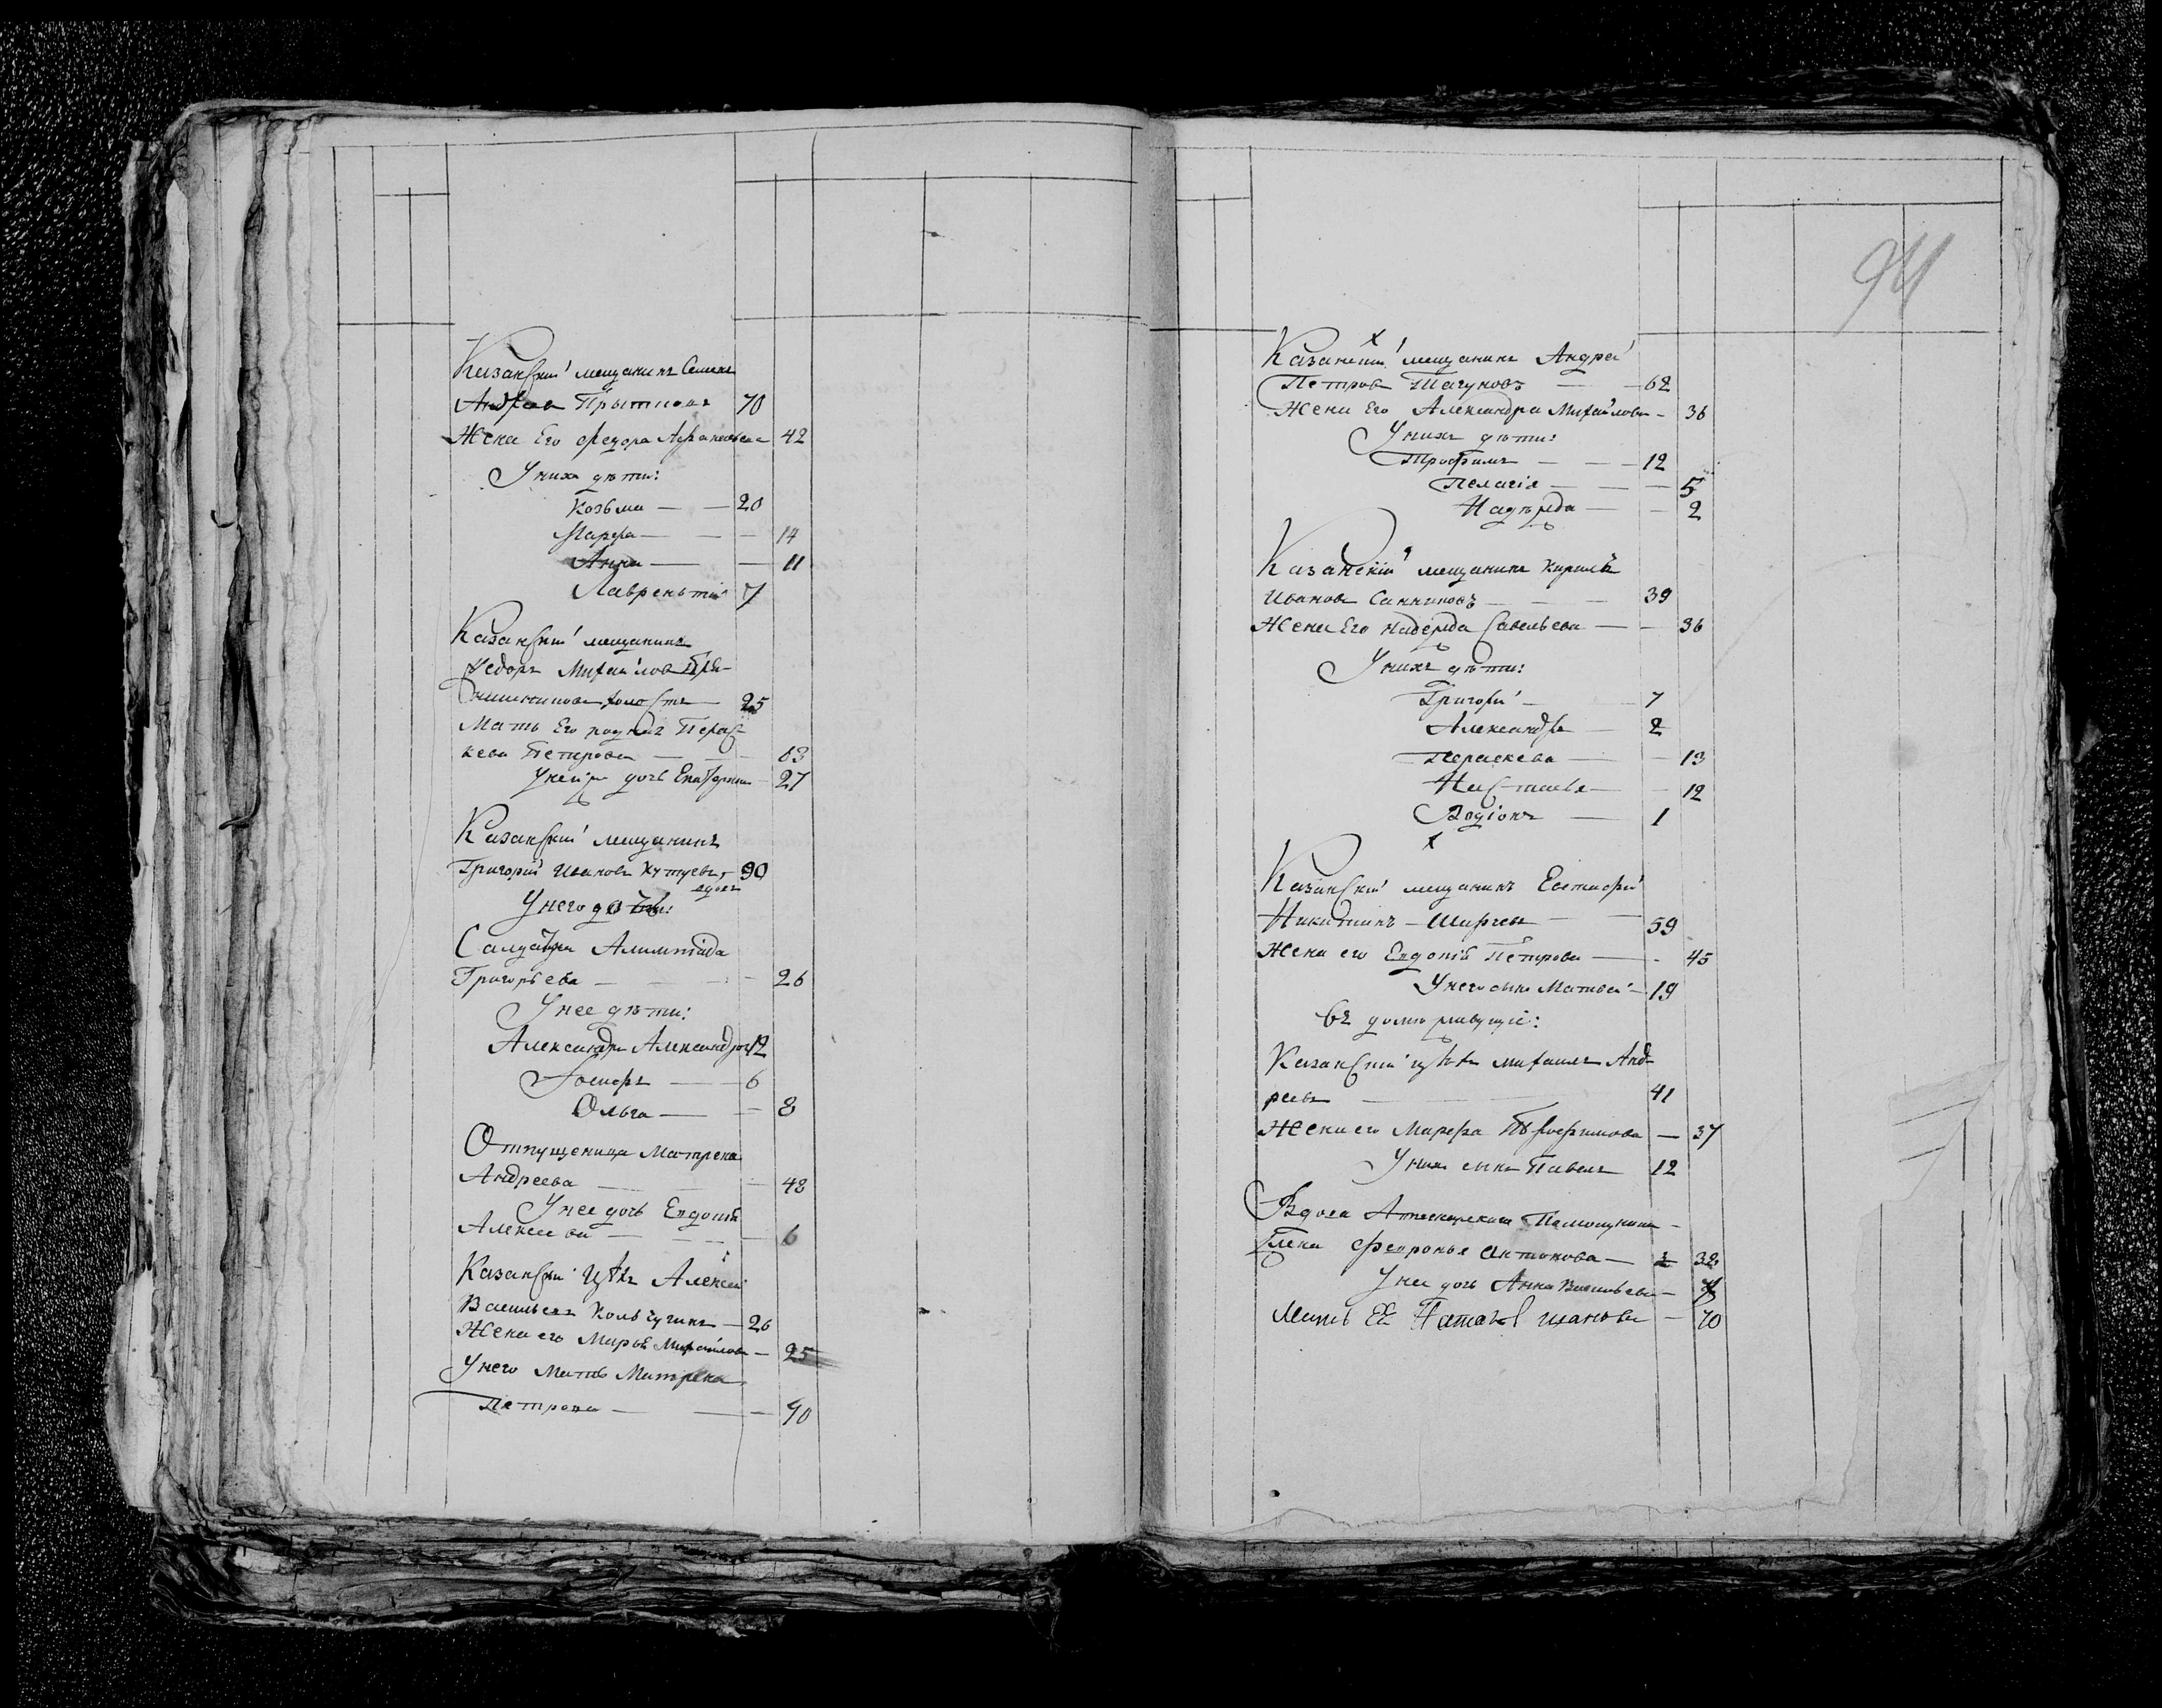 Казанской мещанинъ Семенъ
Андреев Прыткова 70
Жена Его Федора Афанасьева 42
У них дѣти:
Козьма — — 20
Марфа — — — 14
Анна — — 11
Лаврентий 7
Казанской мещанинъ
Федоръ Михайлов Пря-
нишниковъ холостъ 25
Мать Его родная Парас-
кева Петрова — — 63
У ней дочь Екатерина 27
Казанской мещанинъ
Григорий Иванов 90
вдовъ
У него дочь:
Салдатка Алимпиада
Григорьева — — — 26
У нее дѣти:
Александръ Александров 12
Ольга — — 8
Отпущеница Матрена
Андреева — — 48
У нее дочь Евдокия
Алексеева — — — 6
Казанской цѣх Алексей
Васильевъ Кольчугинъ — 26
Жена его Марья Михайлова — 25
У него Мать Матрена
Петрова — — — 70
94
Казанской мещанинъ Андрей
Петров — — 62
Жена Его Александра Михайлова — 36
У нихъ дѣти:
Трофимъ — — — 12
Пелагія — — — 5
Надѣжда — — 2
Казанскій мещанинъ Кирилъ
Иванов Санниковъ — — 39
Жена Его Надежда Савельева — — 36
У нихъ дѣти:
Григорій — — 7
Александръ — 2
Параскева — — 13
Настасья — — 12
Родіонъ — 1
Казанской мещанинъ Евстифій
Никитинъ — 59
Жена его Евдокія Петрова — — 45
У него сынъ Матвей — 19
Въ домѣ живущіе:
Казанской цѣх Михаилъ Анд-
реевъ — 41
Жена его Марфа Трофимова — 37
У них сынъ Павелъ 12
Вдова
Феврония Антонова — 32
У нее дочь Анна Васильева —
Мать Ее — 70